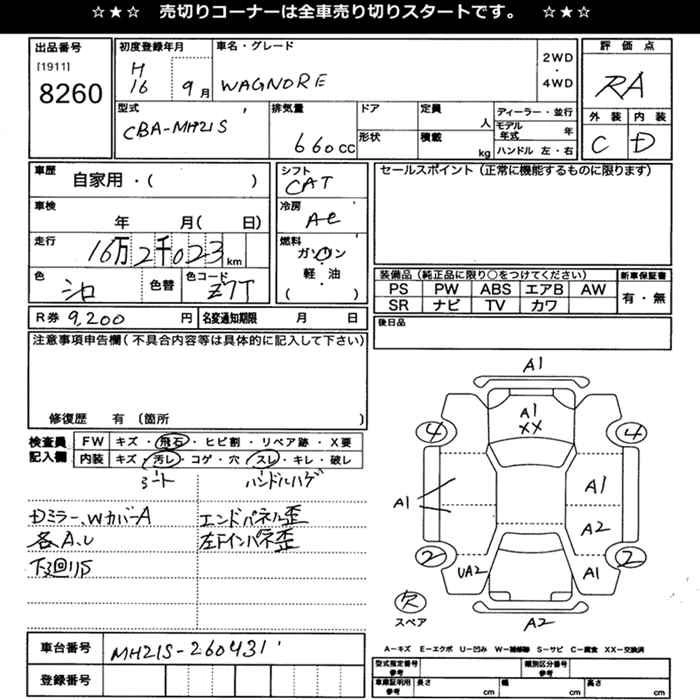 ☆★☆ 売切りコーナーは全車売り切りスタートです。 ☆★☆
出品番号
[1911]
8260
初度登録年月
H
16 9月
車名・グレード
WAGNORE
2WD
・
4WD
評価点
RA
外装 内装
C D
型式
CBA-MH21S
排気量
660cc
ドア
形状
定員
人
積載
kg
ディーラー・並行
モデル
年式 年
ハンドル 左・右
車歴
自家用・( )
車検
年 月( 日)
走行
16万2千023km
色
シロ
色替
色コード
Z7T
シフト
CAT
冷房
AC
燃料
ガソリン
・
軽・油
( )
セールスポイント(正常に機能するものに限ります)
装備品(純正品に限り○をつけてください) 新車保証書
PS PW ABS エアB AW
SR ナビ TV カワ
有・無
後日品
R券 9,200 円
名変通知期限 月 日
注意事項申告欄(不具合内容等は具体的に記入して下さい)
修復歴 有(箇所 )
検査員
記入欄
FW キズ・飛石・ヒビ割・リペア跡・X要
内装 キズ・汚レ・コゲ・穴・スレ・キレ・破レ
シート
ハンドルハゲ
Dミラー、WカバーA
各A.U
下廻りS
エンドパネル歪
左Fインパネ歪
A1
A1
XX
4 4
A1
A1
A2
2 2
UA2
A1
A2
欠
スペア
A-キズ E-エクボ U-凹み W-補修跡 S-サビ C-腐食 XX-交換済
車台番号
MH21S-260431
登録番号
型式指定番号
参考
類別区分番号
参考
車庫証明用
参考
長さ
cm
幅
cm
高さ
cm